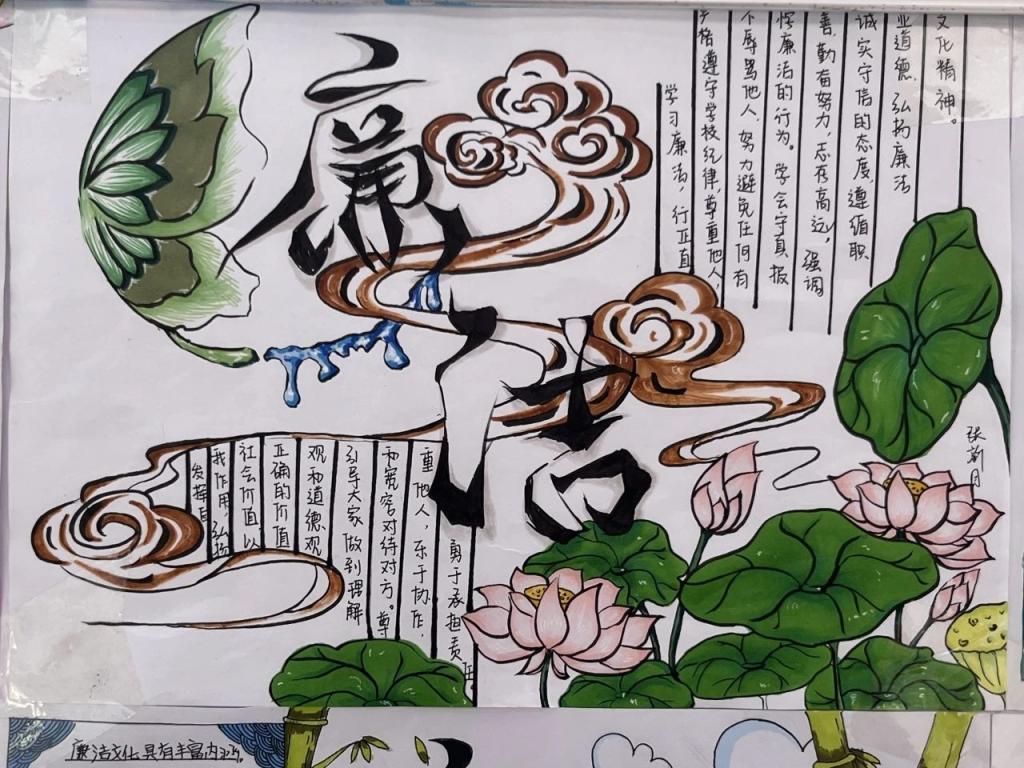 廉洁
学习廉洁，行正直
严格遵守学校纪律，尊重他人，
不辱骂他人，努力避免任何有
悖廉洁的行为。学会守真报
善，勤奋努力，志在高远，强调
诚实守信的态度，遵循职
业道德，弘扬廉洁
文化精神。
发挥自
我作用，弘扬
社会价值，以
正确的价值
观和道德观
引导大家做到理解
和宽容对待对方。尊
重他人，乐于协作，
勇于承担责任
廉洁文化具有丰富内